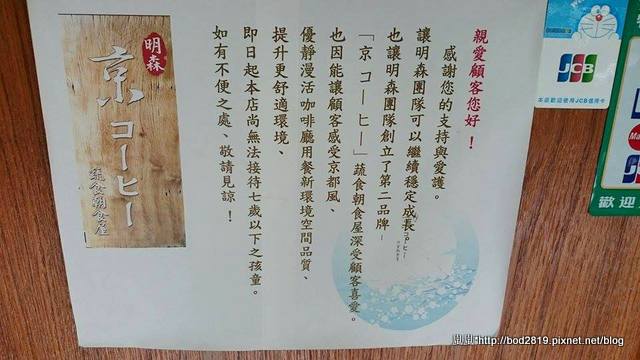 親愛顧客您好！
感謝您的支持與愛護。
讓明森團隊可以繼續穩定成長
也讓明森團隊創立了第二品牌—
「京コーヒー」蔬食朝食屋深受顧客喜愛。
也因能讓顧客感受京都風、
優靜漫活咖啡廳用餐新環境空間品質、
提升更舒適環境、
即日起本店尚無法接待七歲以下之孩童。
如有不便之處、敬請見諒！
明森
京コーヒー
蔬食朝食屋
JCB
本店歡迎使用JCB信用卡
JCB
歡迎
http://bod2819.pixnet.net/blog